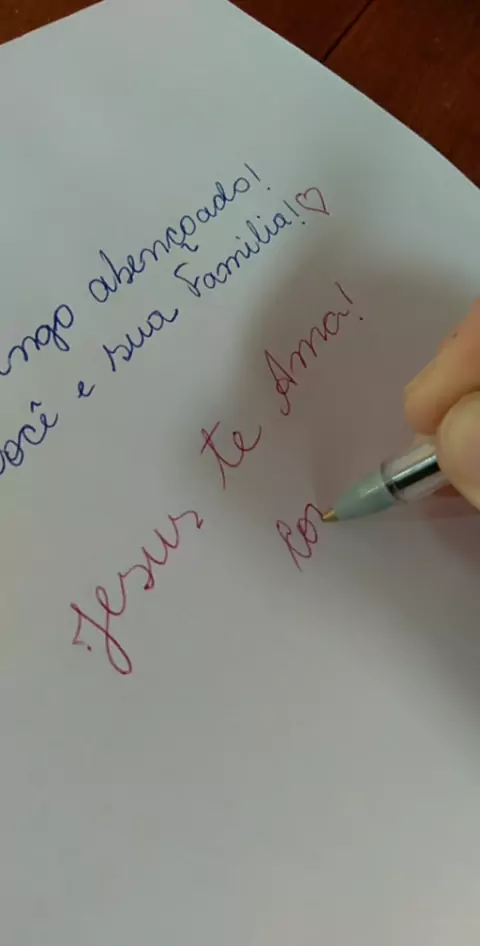 ngo abençoado!
você e sua Familia!♡
Jesus te Ama!